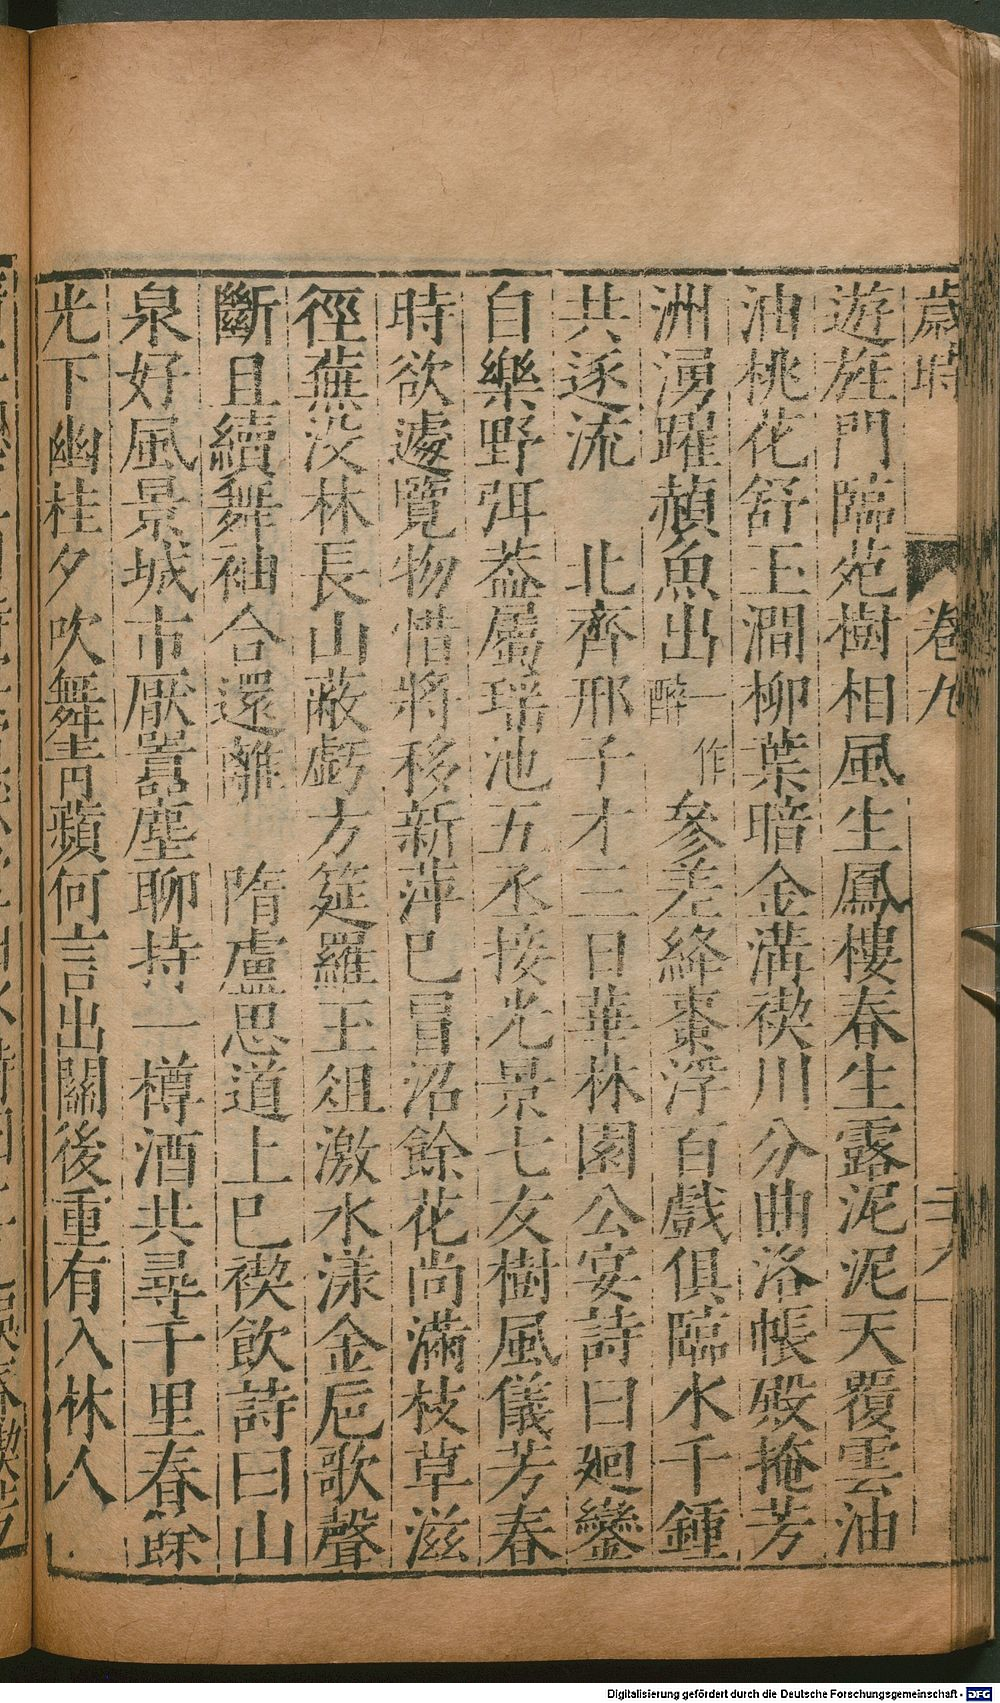 歲時 卷九
遊旌門臨苑樹相風生鳳樓春生露泥泥天覆雲油
油桃花舒玉澗柳葉暗金溝禊川分曲洛帳殿掩芳
洲湧躍頳魚出一作醉參差絳棗浮百戲俱臨水千鍾
共逐流 北齊邢子才三日華林園公宴詩曰廻鑾
自樂野弭葢屬瑶池五丞接光景七友樹風儀芳春
時欲遽覽物惜將移新萍已冒沼餘花尚滿枝草滋
徑蕪没林長山蔽虧方筵羅玉俎激水漾金巵歌聲
斷且續舞袖合還離 隋盧思道上巳禊飲詩曰山
泉好風景城市厭囂塵聊持一樽酒共尋千里春餘
光下幽桂夕吹舞青蘋何言出關後重有入林人
Digitalisierung gefördert durch die Deutsche Forschungsgemeinschaft - DFG